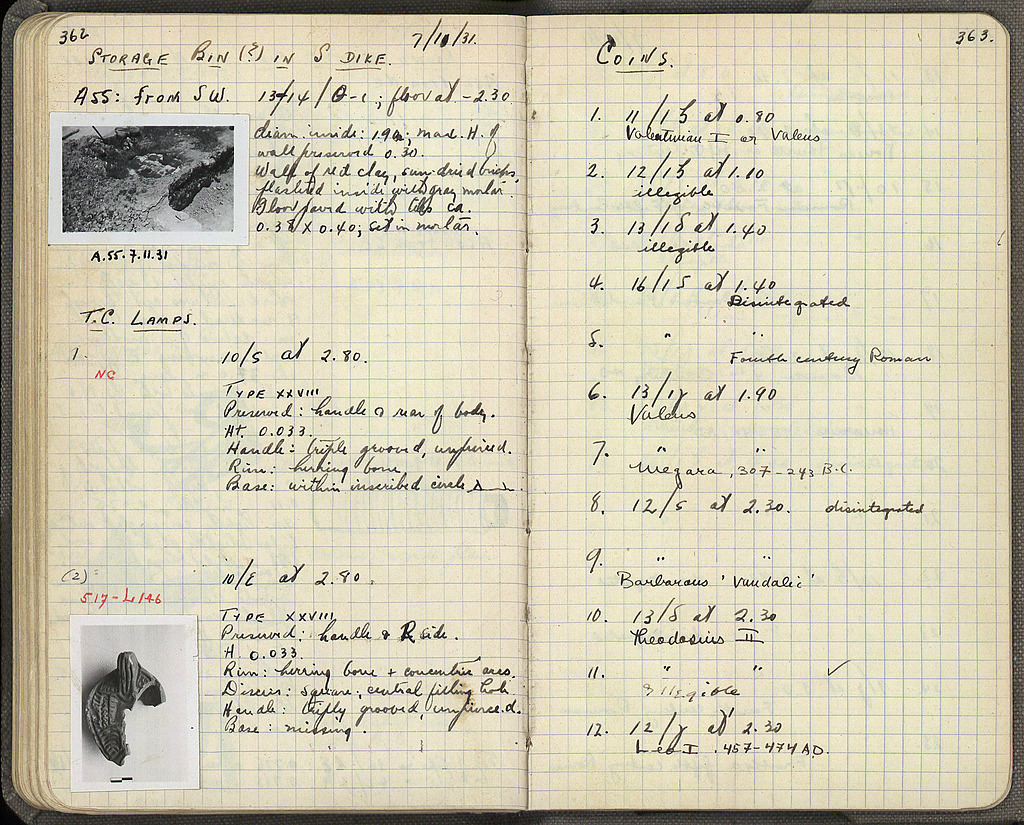 362
7/11/31.
STORAGE BIN (?) IN S DIKE.
A55: from SW. 13-14/Θ-ι; floor at -2.30
diam. inside: 1.90; max. H. of
wall preserved 0.30.
Wall of red clay, sun-dried bricks,
plastered inside with gray mortar
Floor paved with tiles ca.
0.38 x 0.40; set in mortar.
A.55.7.11.31
T.C. LAMPS.
1. 10/S at 2.80.
NC
TYPE XXVIII
Preserved: handle & rear of body.
Ht. 0.033.
Handle: triple grooved, unpierced.
Rim: herring bone.
Base: within inscribed circle
(2) 10/E at 2.80.
517-L146
TYPE XXVIII
Preserved: handle & R side.
H. 0.033.
Rim: herring bone + concentric arcs.
Discus: square; central filling hole.
Handle: triply grooved, unpierced.
Base: missing.
363.
COINS.
1. 11/15 at 0.80
Valentinian I or Valens
2. 12/15 at 1.10
illegible
3. 13/18 at 1.40
illegible
4. 16/15 at 1.40
Disintegrated
5. " "
Fourth century Roman
6. 13/1γ at 1.90
Valens
7. " "
Megara, 307-243 B.C.
8. 12/S at 2.30. disintegrated
9. " "
Barbarous 'Vandalic'
10. 13/δ at 2.30
Theodosius II
11. " " ✓
Illegible
12. 12/γ at 2.30
Leo I. 457-474 A.D.